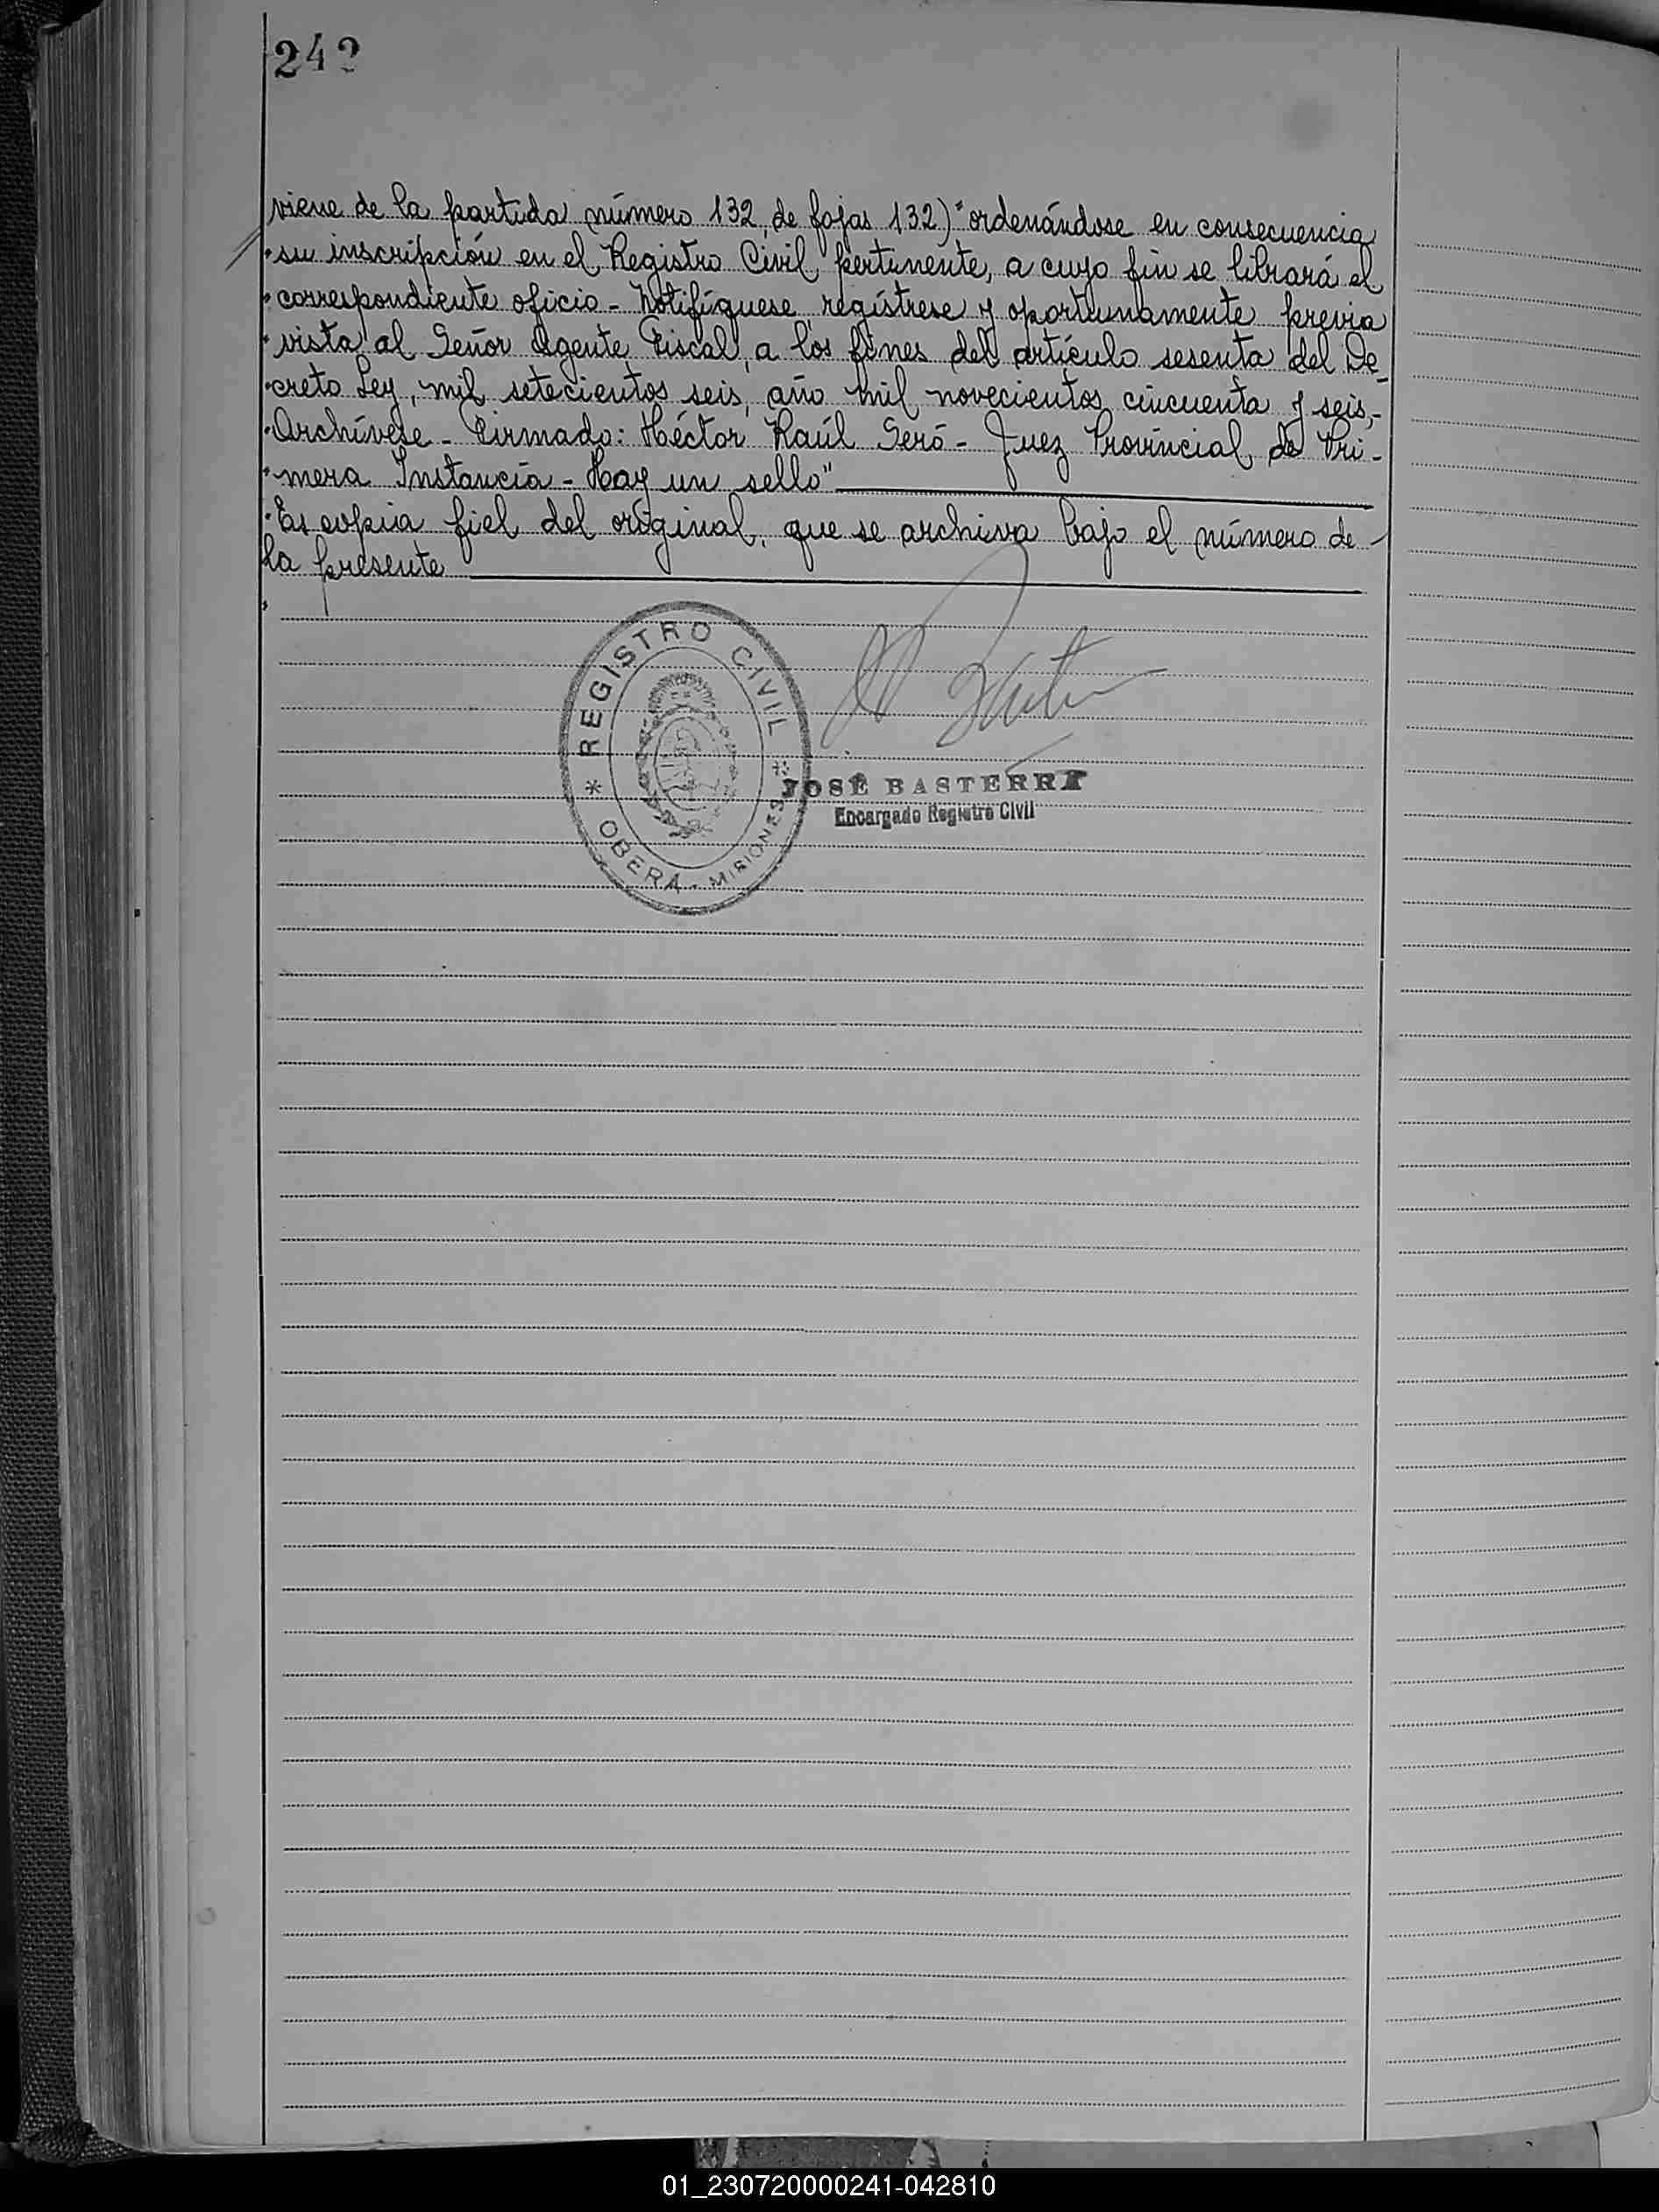 242
viene de la partida número 132, de fojas 132) "ordenándose en consecuencia
"su inscripción en el Registro Civil pertinente, a cuyo fin se librará el
"correspondiente oficio - Notifíquese, regístrese y oportunamente previa
"vista al Señor Agente Fiscal, a los fines del artículo sesenta del De_
"creto Ley, mil setecientos seis, año mil novecientos cincuenta y seis,-
"Archívese - Firmado: Héctor Raúl Seró - Juez Provincial de Pri-
"mera Instancia - Hay un sello"
"Es copia fiel del original, que se archiva bajo el número de -
la presente
REGISTRO CIVIL
* OBERA - MISIONES *
JOSÉ BASTERRA
Encargado Registro Civil
01_230720000241-042810